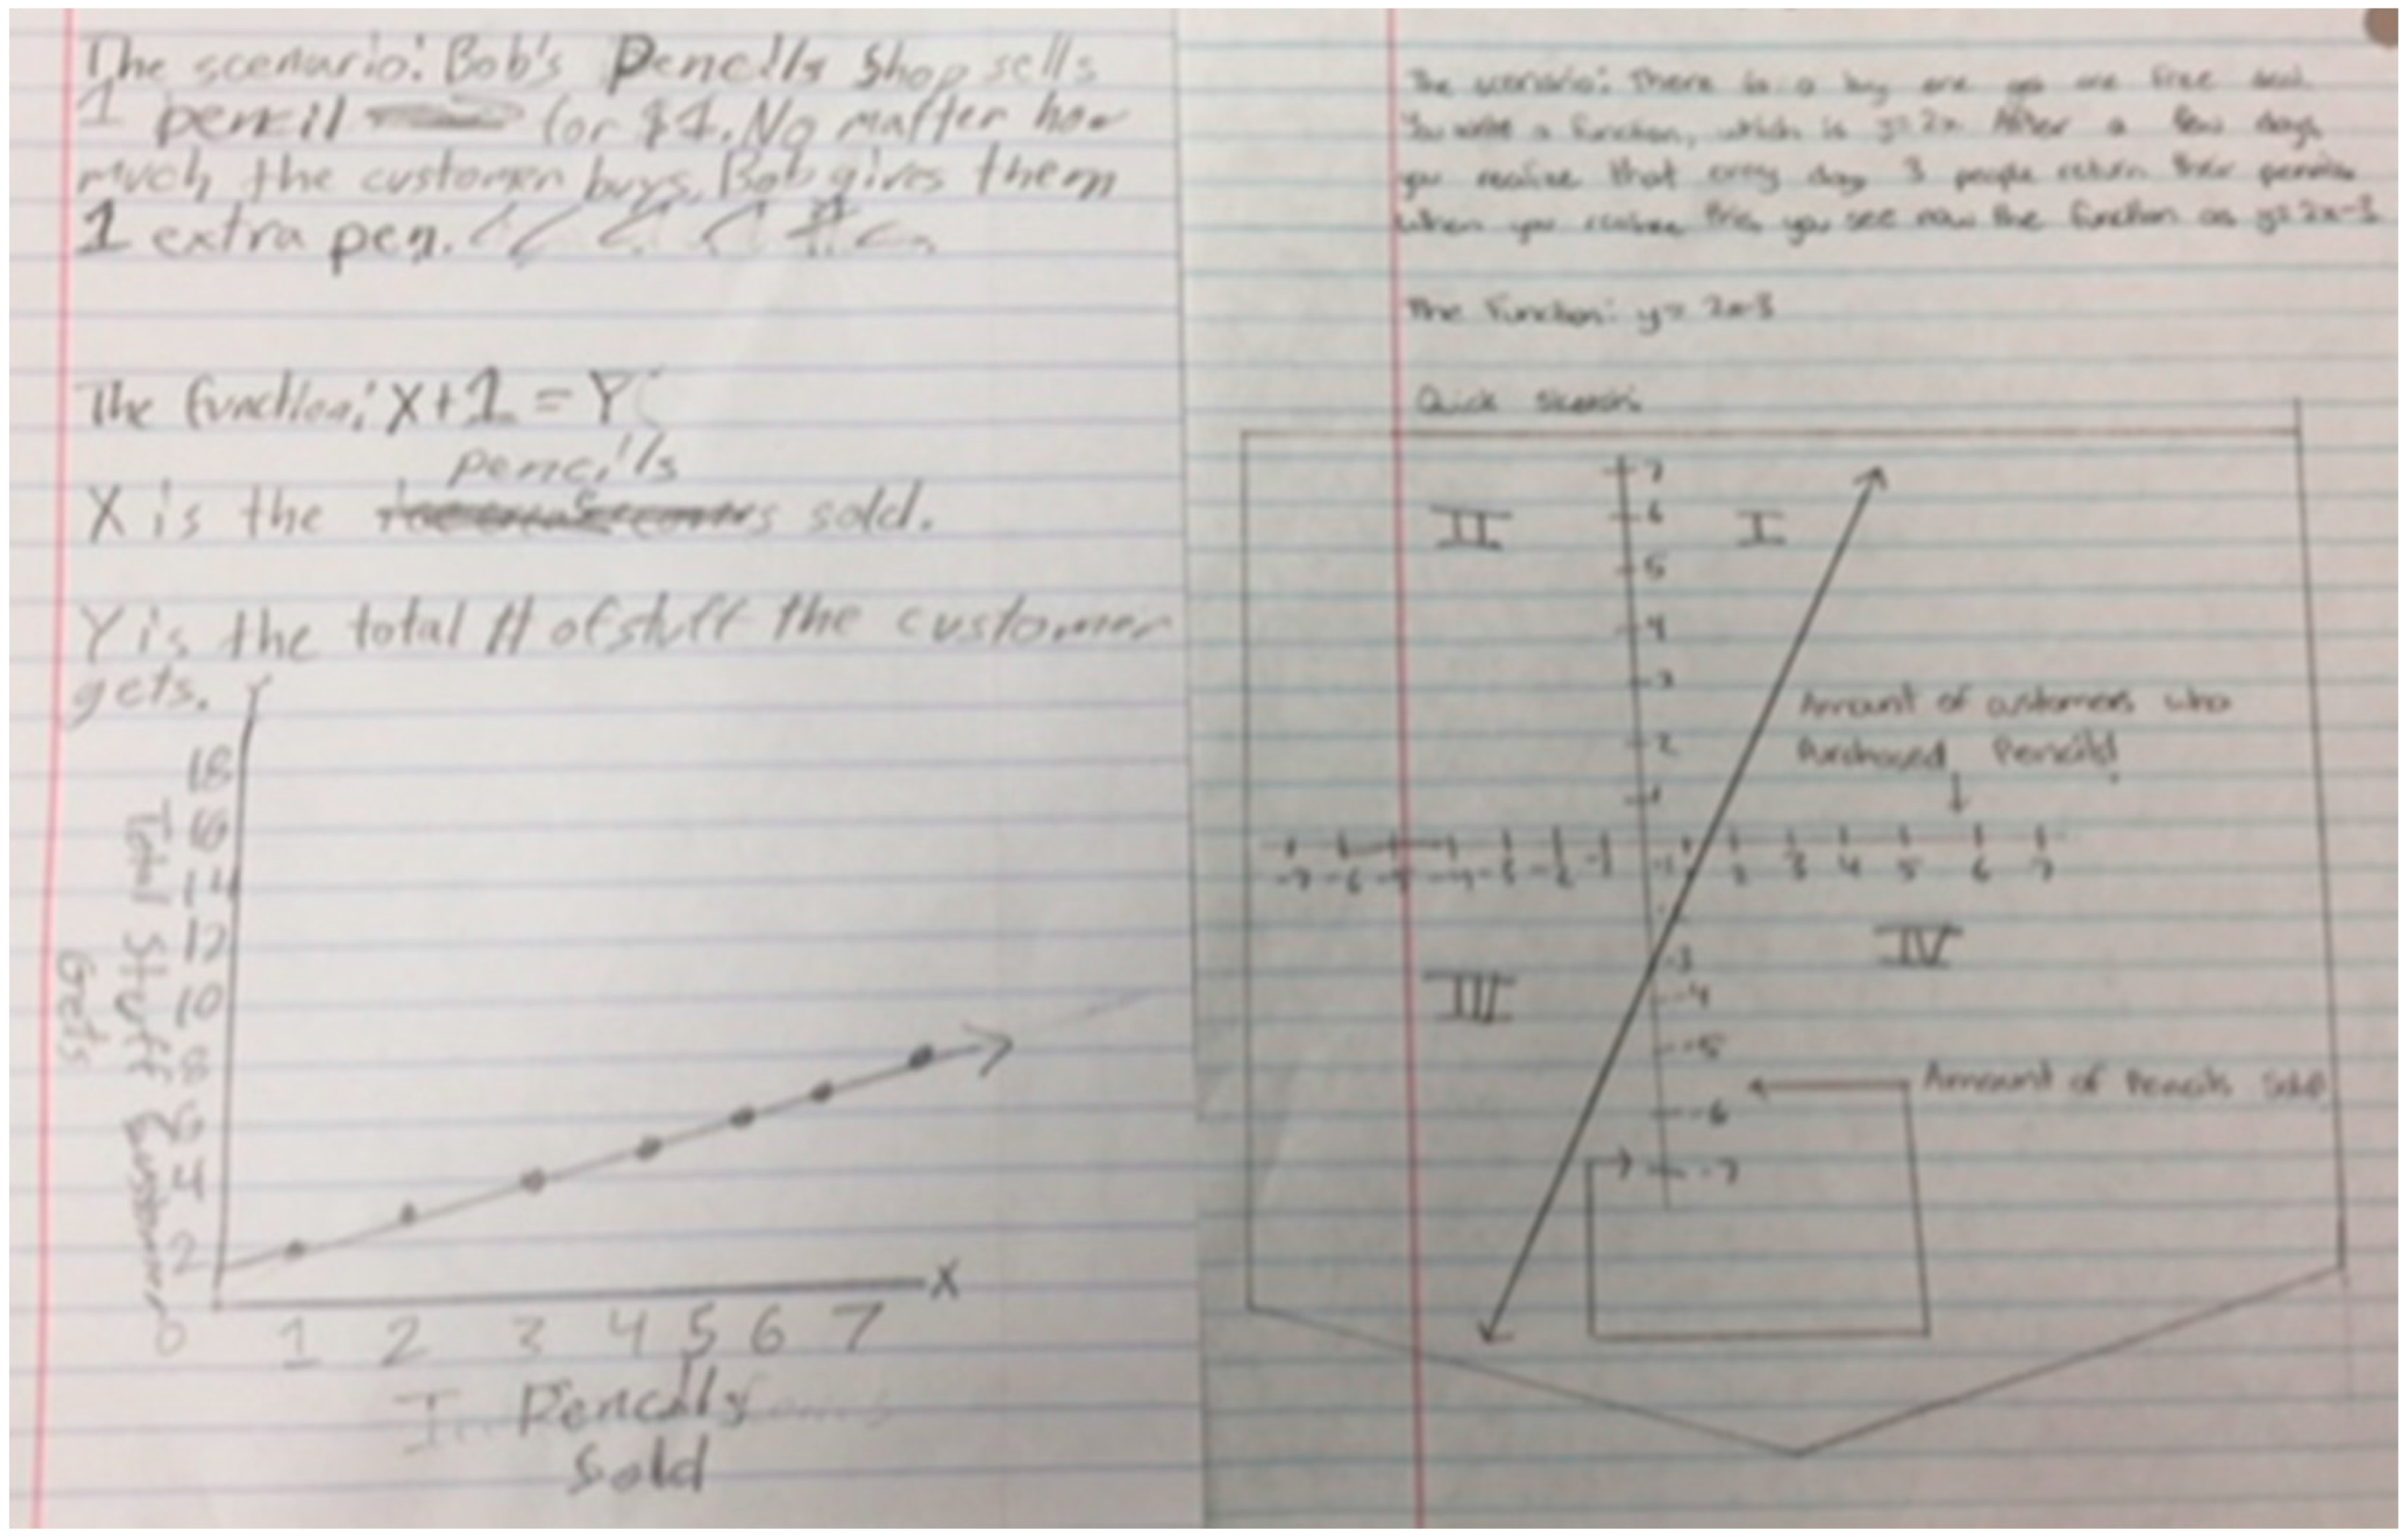 The scenario: Bob's Pencills Shop sells
1 pencil for $1. No matter how
much the customer buys, Bob gives them
1 extra pen.
The function: X+1=Y
pencills
X is the sold.
Y is the total # of stuff the customer
gets.
Y
18
16
14
12
10
8
6
4
2
0
Total Stuff Customer
Gets
X
1 2 3 4 5 6 7
Pencills
Sold
The scenario: There is a buy one get one free deal.
You write a function, which is y=2x. After a few days
you realize that every day 3 people return their pencils.
When you realize this, you see now the function as y=2x-3
The Function: y= 2x-3
Quick Sketch:
7
6
5
4
3
2
1
II I
Amount of customers who
Purchased Pencils!
-7 -6 -5 -4 -3 -2 -1 1 2 3 4 5 6 7
III IV
-3
-4
-5
-6
-7
Amount of Pencils Sold